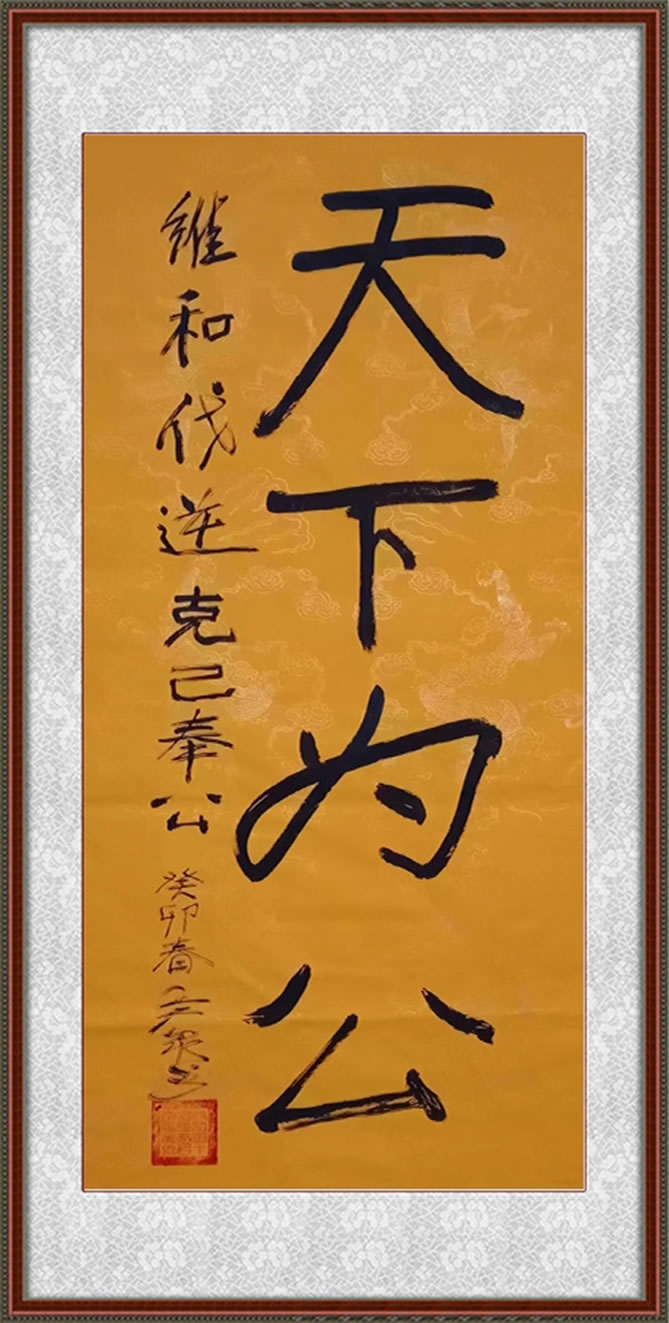 天下为公
維和伐逆克己奉公
癸卯春